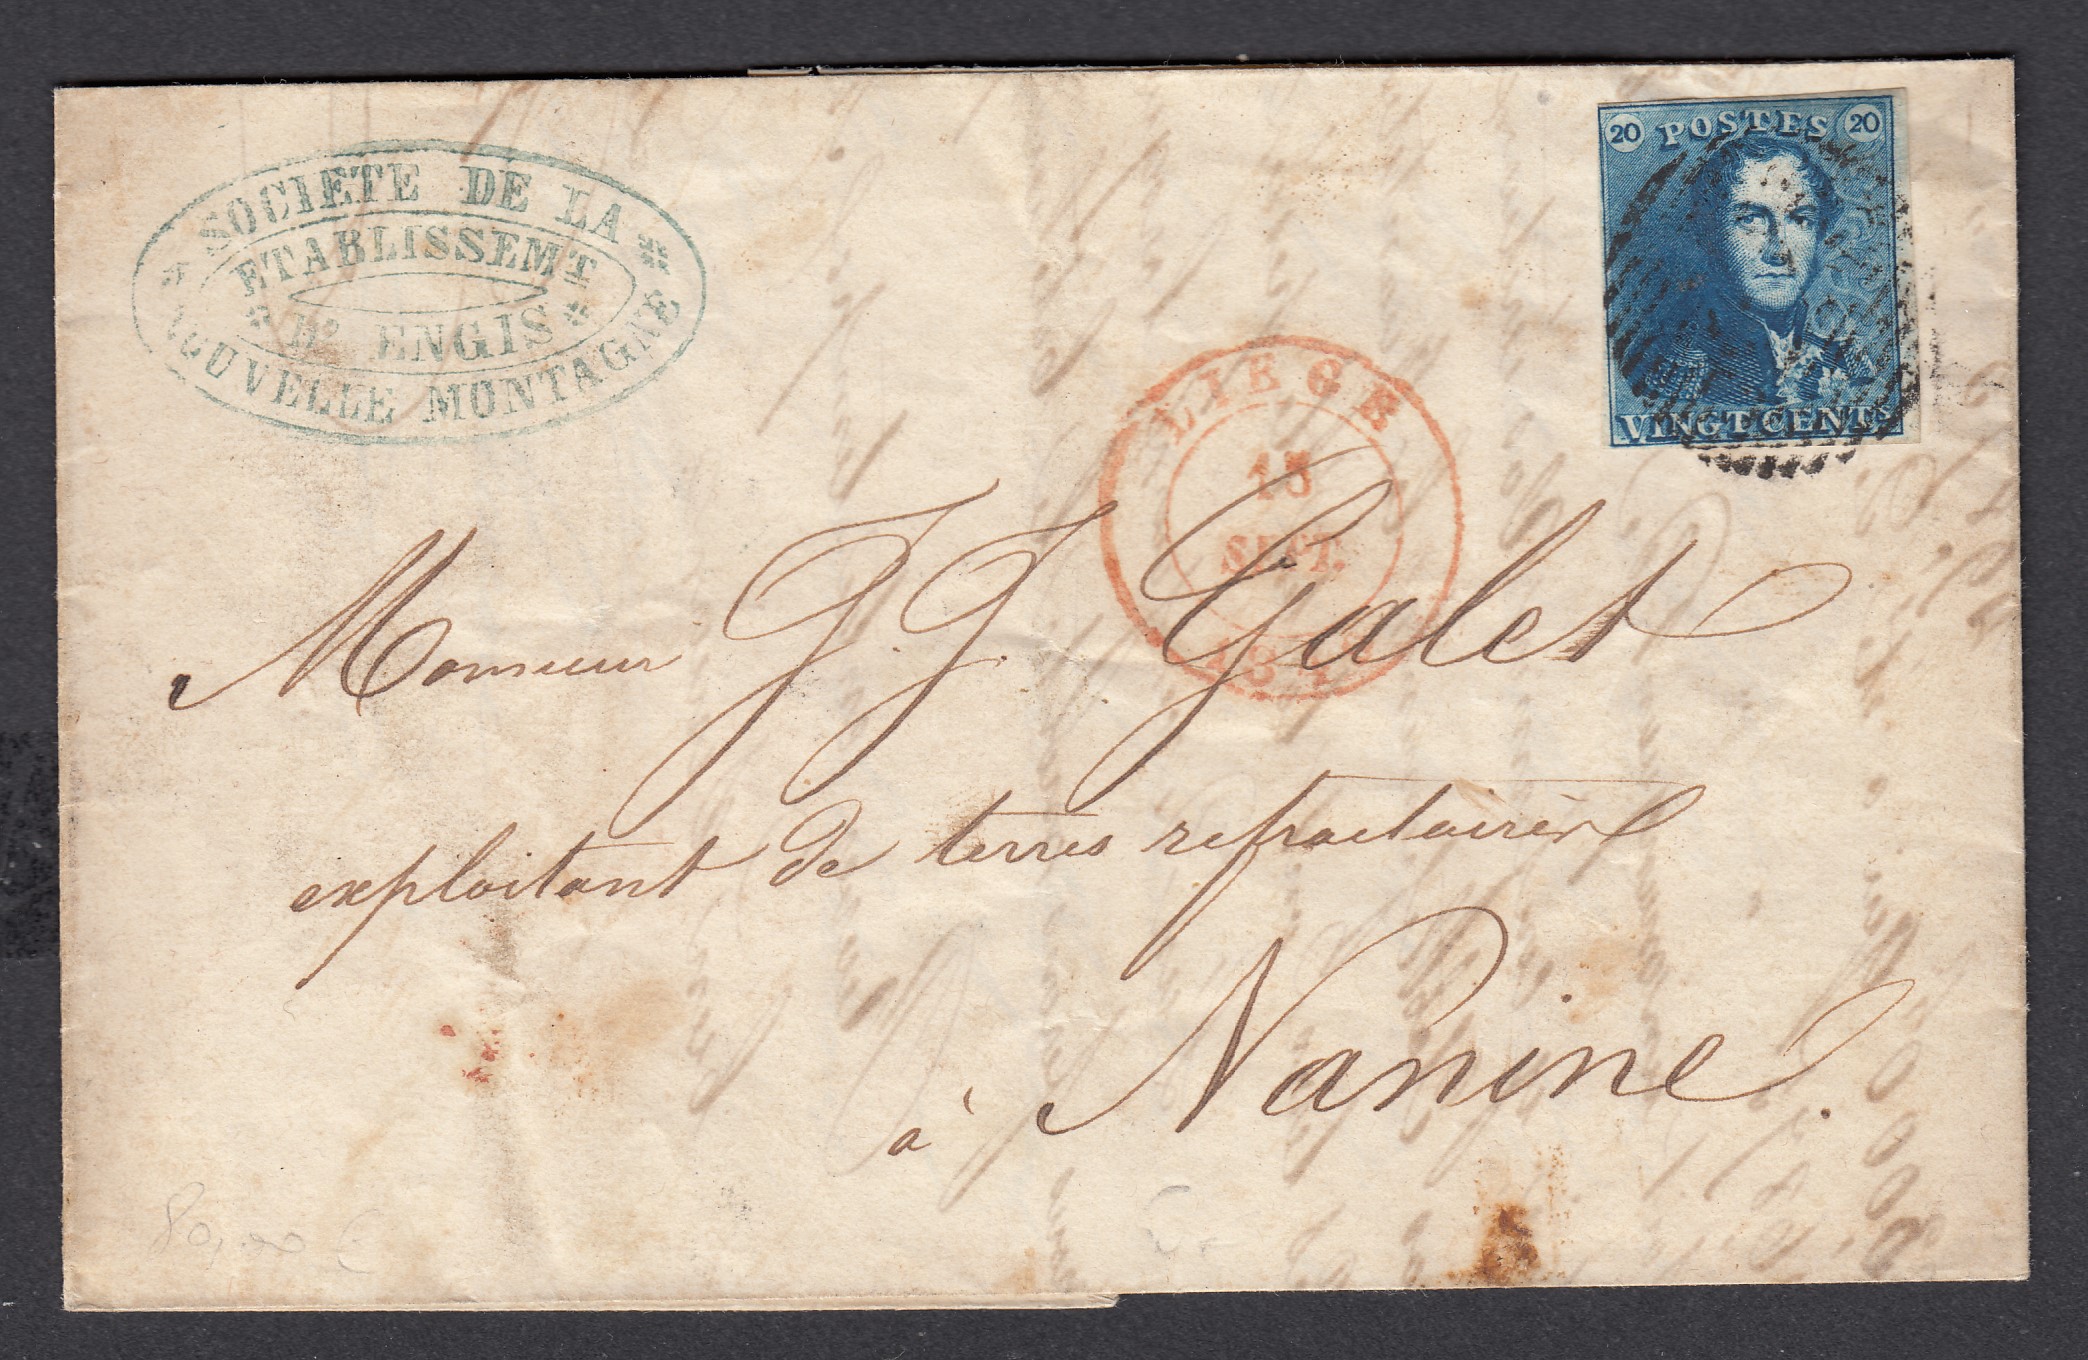 SOCIETE DE LA
NOUVELLE MONTAGNE
ETABLISSEMT
D'ENGIS
20 POSTES 20
VINGT CENTS
LIEGE
15
SEPT.
Monsieur J. J. Galet
exploitant de terres refractaires
à Naninne.
80,00 €